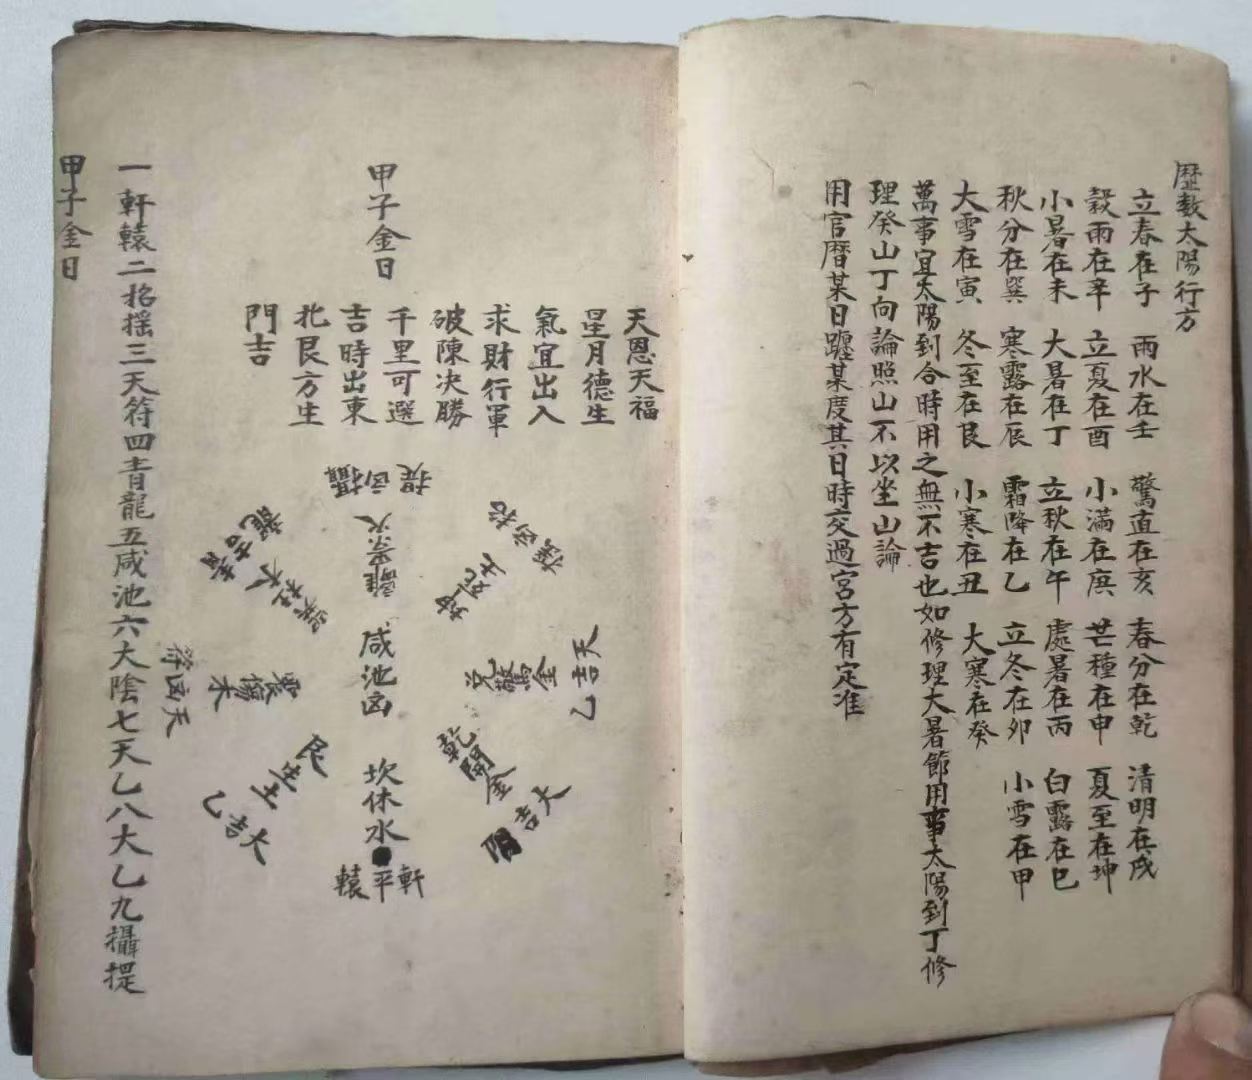 歷數太陽行方
立春在子　雨水在壬　驚直在亥　春分在乾　清明在戌
穀雨在辛　立夏在酉　小滿在庚　芒種在申　夏至在坤
小暑在未　大暑在丁　立秋在午　處暑在丙　白露在巳
秋分在巽　寒露在辰　霜降在乙　立冬在卯　小雪在甲
大雪在寅　冬至在艮　小寒在丑　大寒在癸
萬事宜太陽到合時用之無不吉也如修理大暑節用事太陽到丁修
理癸山丁向論照山不以坐山論
用官曆某日躔某度其日時交過宮方有定准
天恩天福
星月德生
氣宜出入
求財行軍
破陳決勝
千里可選
吉時出東
北艮方生
門吉
甲子金日
提凶攝
離景火
招凶搖
坤死土
龍吉青
巽杜木
天吉乙
兌驚金
咸池凶
震傷木
符凶天
乾開金
大吉陰
坎休水
軒平轅
艮生土
大吉乙
一軒轅二招搖三天符四青龍五咸池六大陰七天乙八大乙九攝提
甲子金日